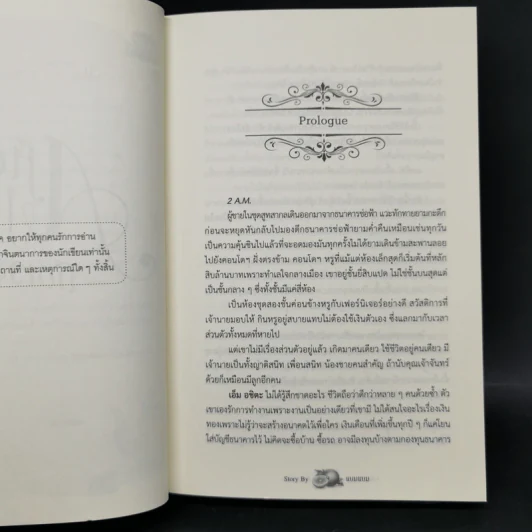 ๆ อยากให้ทุกคนรักการอ่าน
จินตนาการของนักเขียนเท่านั้น
ถานที่ และเหตุการณ์ใด ๆ ทั้งสิ้น
Prologue
2 A.M.
ผู้ชายในชุดสูทสากลเดินออกมาจากธนาคารช่อฟ้า แวะทักทายยามกะดึก
ก่อนจะหยุดหันกลับไปมองตึกธนาคารช่อฟ้ายามค่ำคืนเหมือนเช่นทุกวัน
เป็นความคุ้นชินไปแล้วที่จะอดมองมันทุกครั้งไม่ได้ยามเดินข้ามสะพานลอย
ไปยังคอนโดฯ ฝั่งตรงข้าม คอนโดฯ หรูที่แม้แต่ห้องเล็กสุดก็เริ่มต้นที่หลัก
สิบล้านบาทเพราะทำเลใจกลางเมือง เขาอยู่ชั้นยี่สิบแปด ไม่ใช่ชั้นบนสุดแต่
เป็นชั้นกลาง ๆ ซึ่งทั้งชั้นมีแค่สี่ห้อง
เป็นห้องชุดสองชั้นค่อนข้างหรูกับเฟอร์นิเจอร์อย่างดี สวัสดิการที่
เจ้านายมอบให้ กินหรูอยู่สบายแทบไม่ต้องใช้เงินตัวเอง ซึ่งแลกมากับเวลา
ส่วนตัวทั้งหมดที่หายไป
แต่เขาไม่มีเรื่องส่วนตัวอยู่แล้ว เกิดมาคนเดียว ใช้ชีวิตอยู่คนเดียว มี
เจ้านายเป็นทั้งญาติสนิท เพื่อนสนิท น้องชายคนสำคัญ ถ้านับคุณเจ้าจันทร์
ด้วยก็เหมือนมีลูกอีกคน
เอ็ม อชิตะ ไม่ได้รู้สึกขาดอะไร ชีวิตถือว่าดีกว่าหลาย ๆ คนด้วยซ้ำ ตัว
เขาเองรักการทำงานเพราะงานเป็นอย่างเดียวที่เขามี ไม่ได้สนใจอะไรเรื่องเงิน
ทองเพราะไม่รู้ว่าจะสร้างอนาคตไว้เพื่อใคร เงินเดือนที่เพิ่มขึ้นทุกปี ๆ ก็แค่โยน
ใส่บัญชีธนาคารไว้ ไม่คิดจะซื้อบ้าน ซื้อรถ อาจมีลงทุนบ้างตามกองทุนธนาคาร
Story By